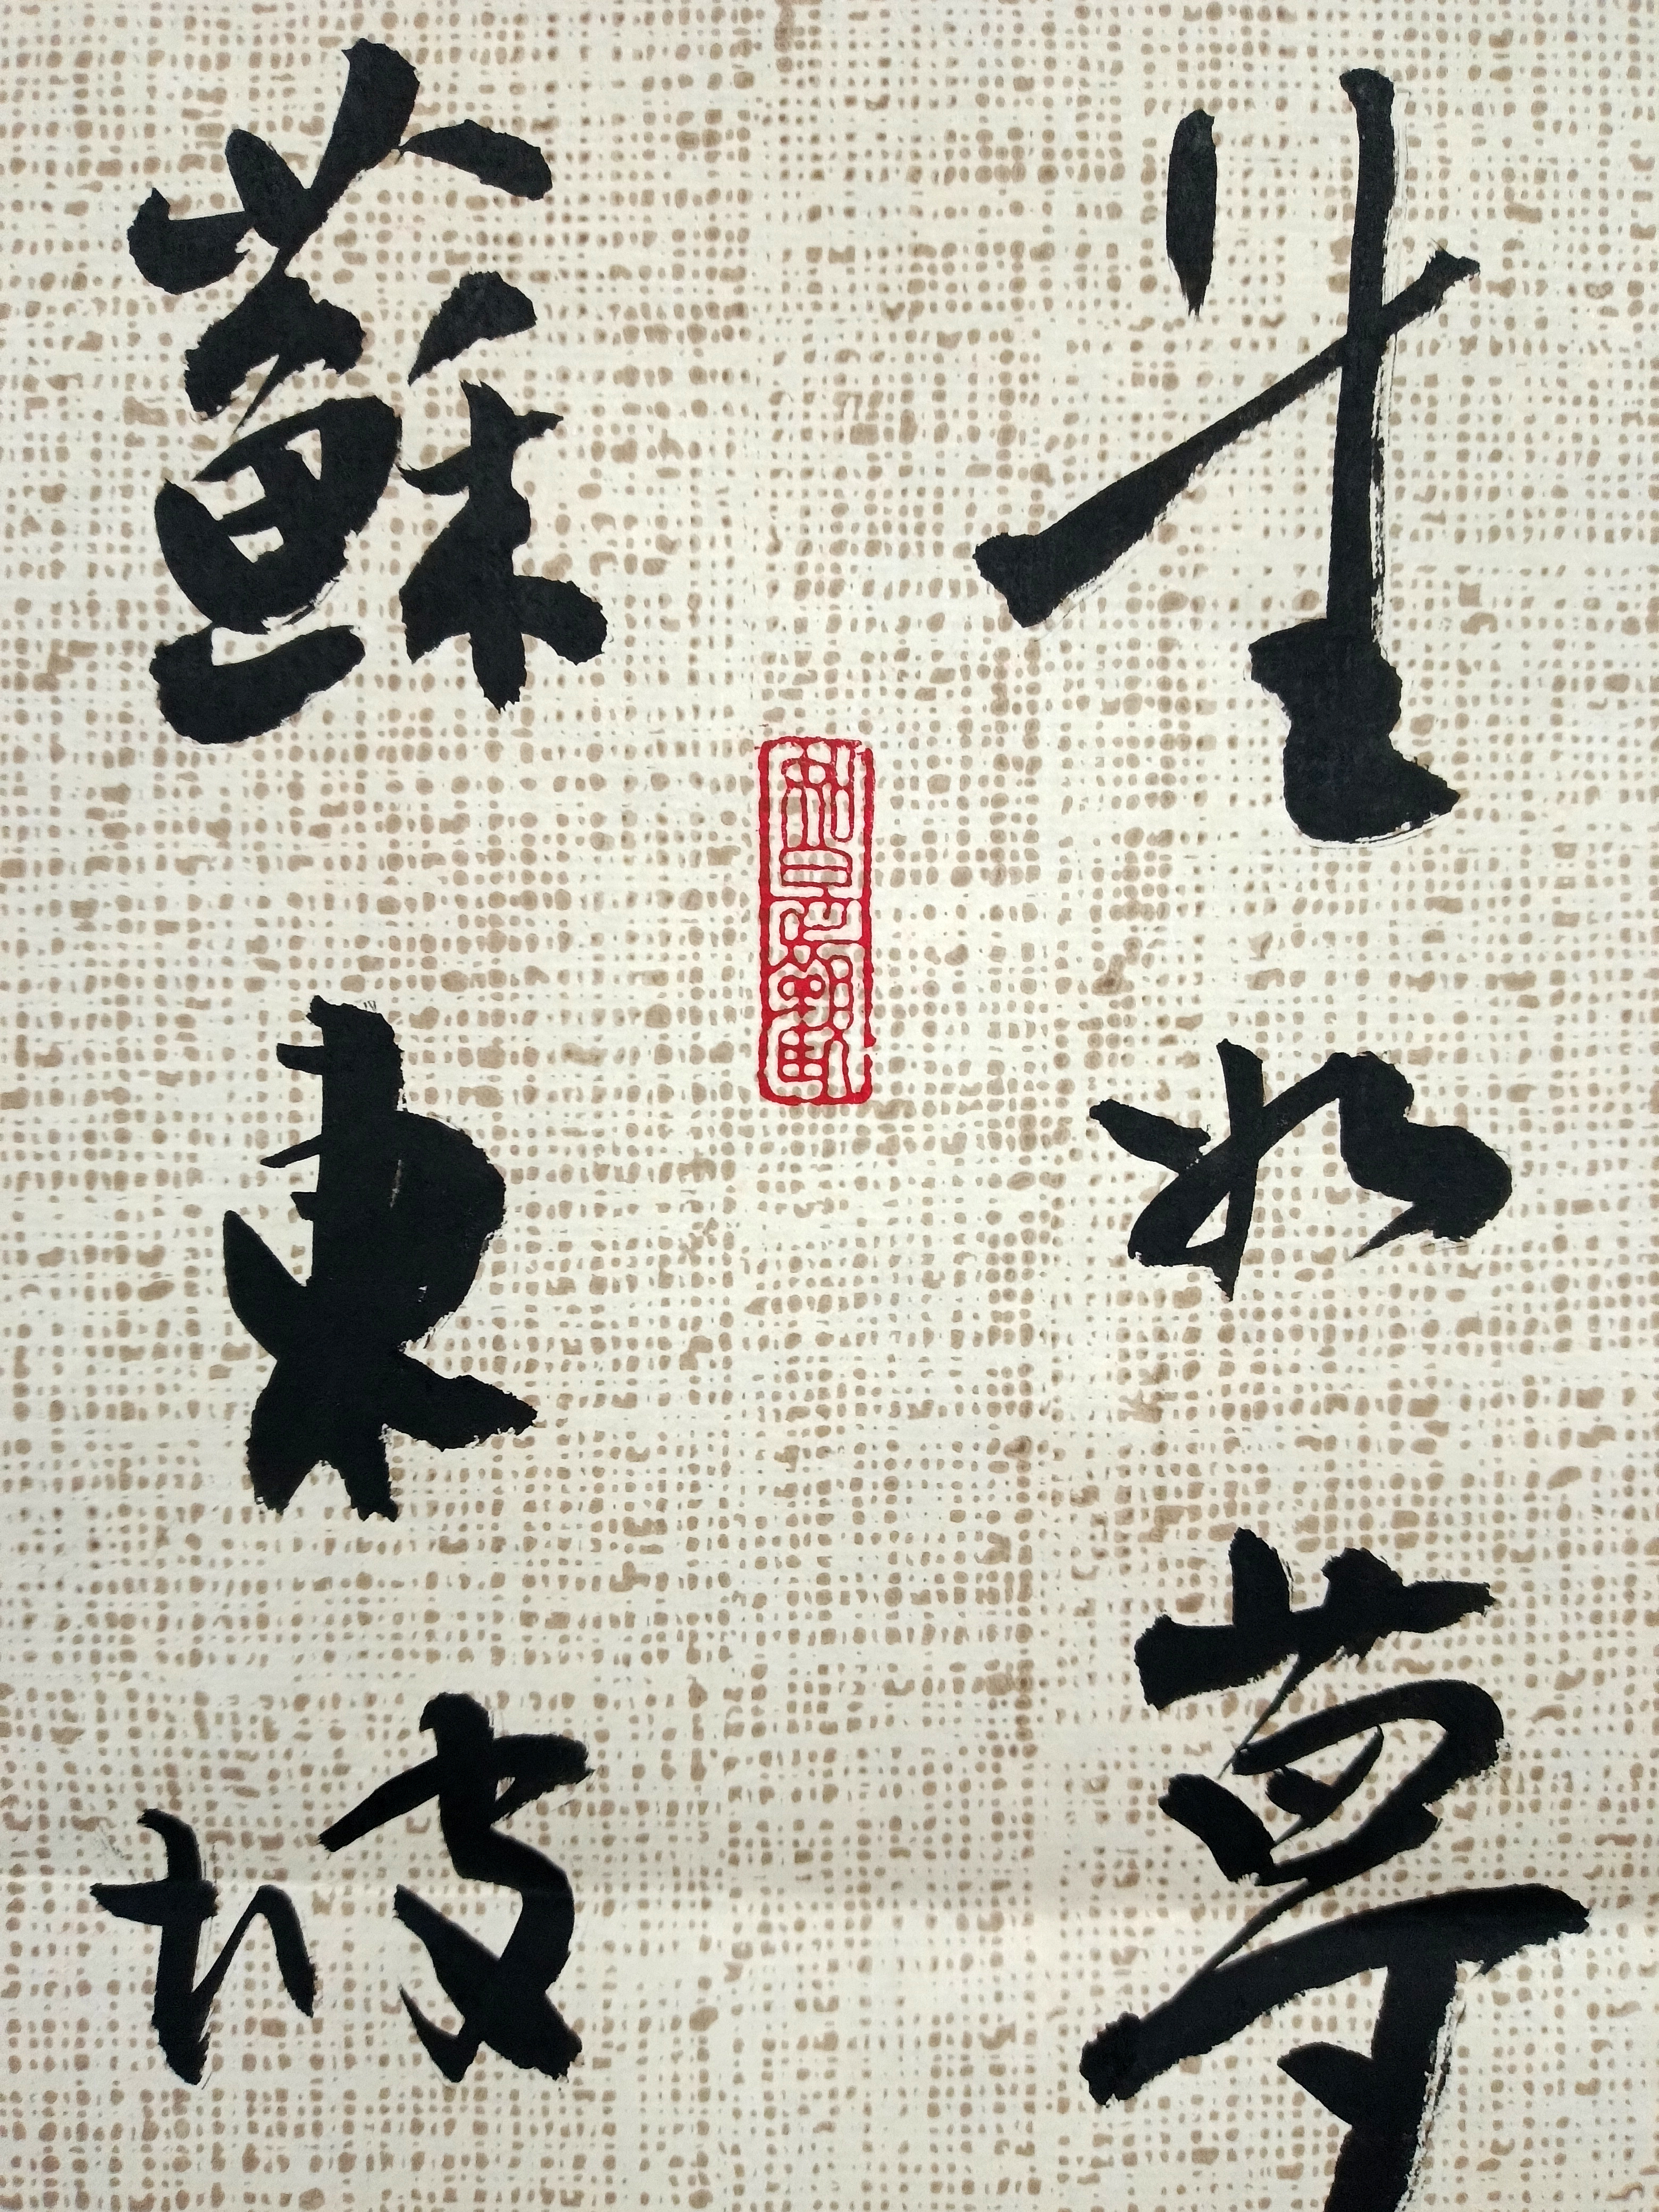 生如夢
蘇東坡